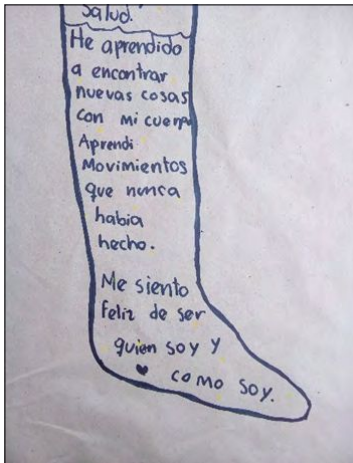 salud.
He aprendido
a encontrar
nuevas cosas
con mi cuerpo
Aprendi
Movimientos
que nunca
habia
hecho.
Me siento
feliz de ser
quien soy y
como soy.